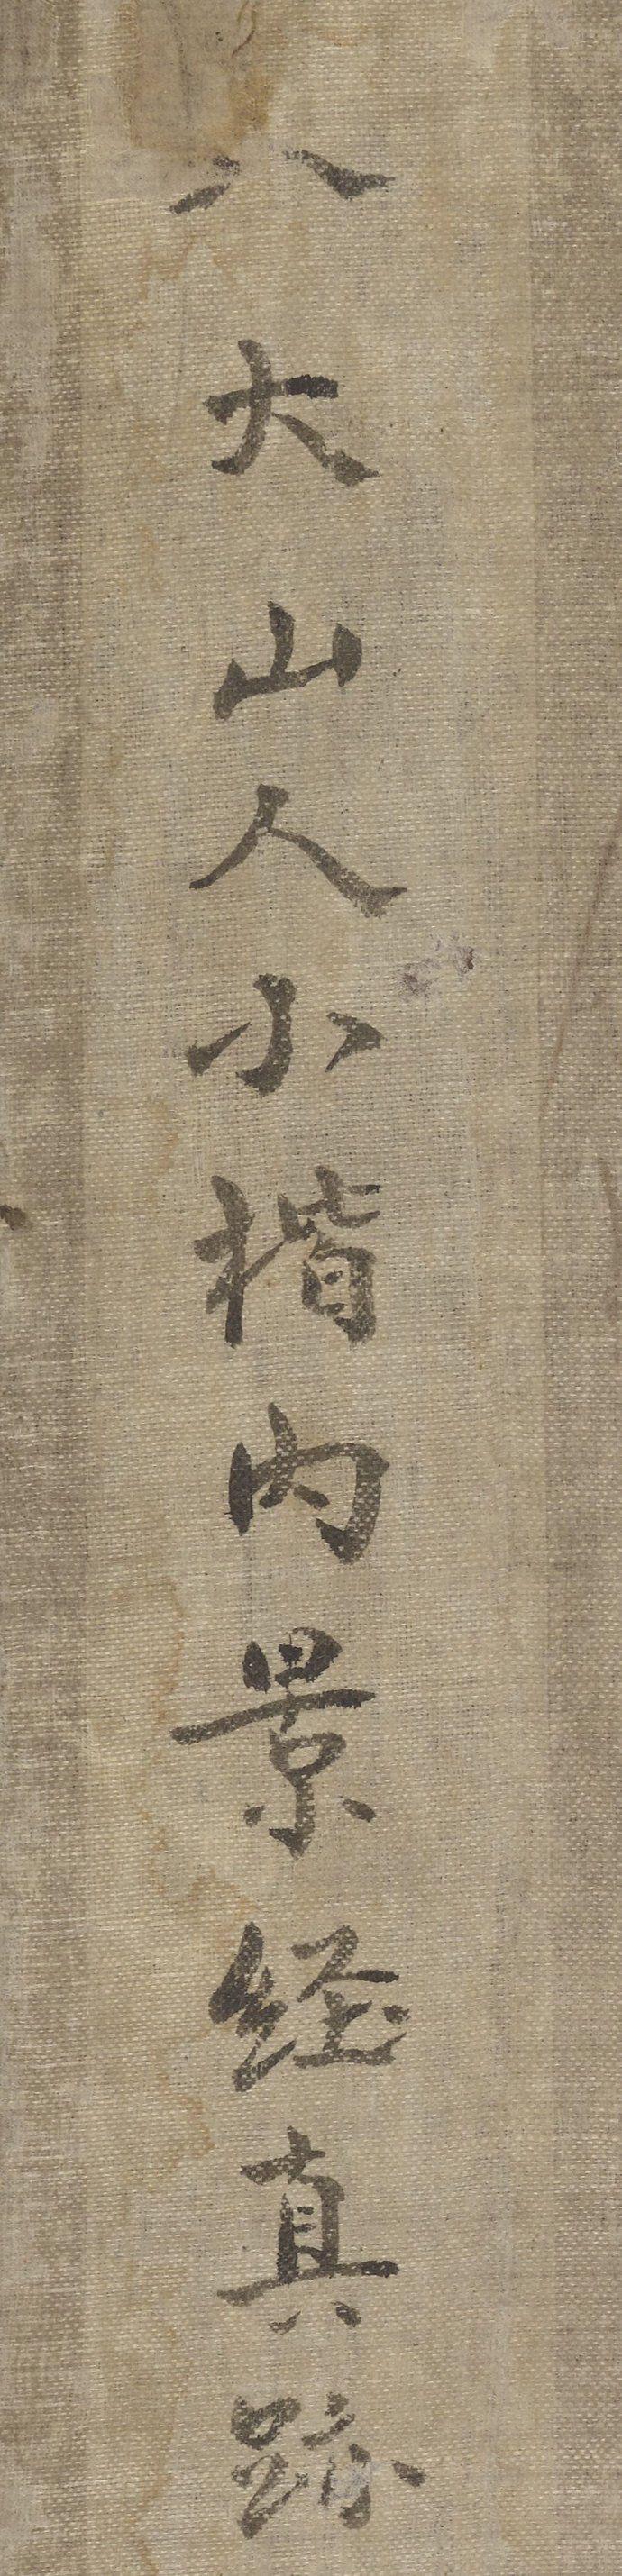 八大山人小楷内景经真跡